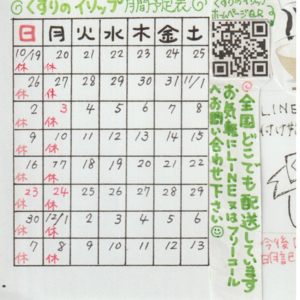 くすりのイソップ月間予定表
くすりのイソップ
ホームページQR
日 月 火 水 木 金 土
10/19 20 21 22 23 24 25
休 休
26 27 28 29 30 31 11/1
休 休
2 3 4 5 6 7 8
休 休
9 10 11 12 13 14 15
休 休
16 17 18 19 20 21 22
休 休
23 24 25 26 27 28 29
休 休
30 12/1 2 3 4 5 6
休 休
7 8 9 10 11 12 13
休 休
全国どこでも配送しています
お気軽にLINE又はフリーコール
へお問い合わせ下さい
LINE
今後